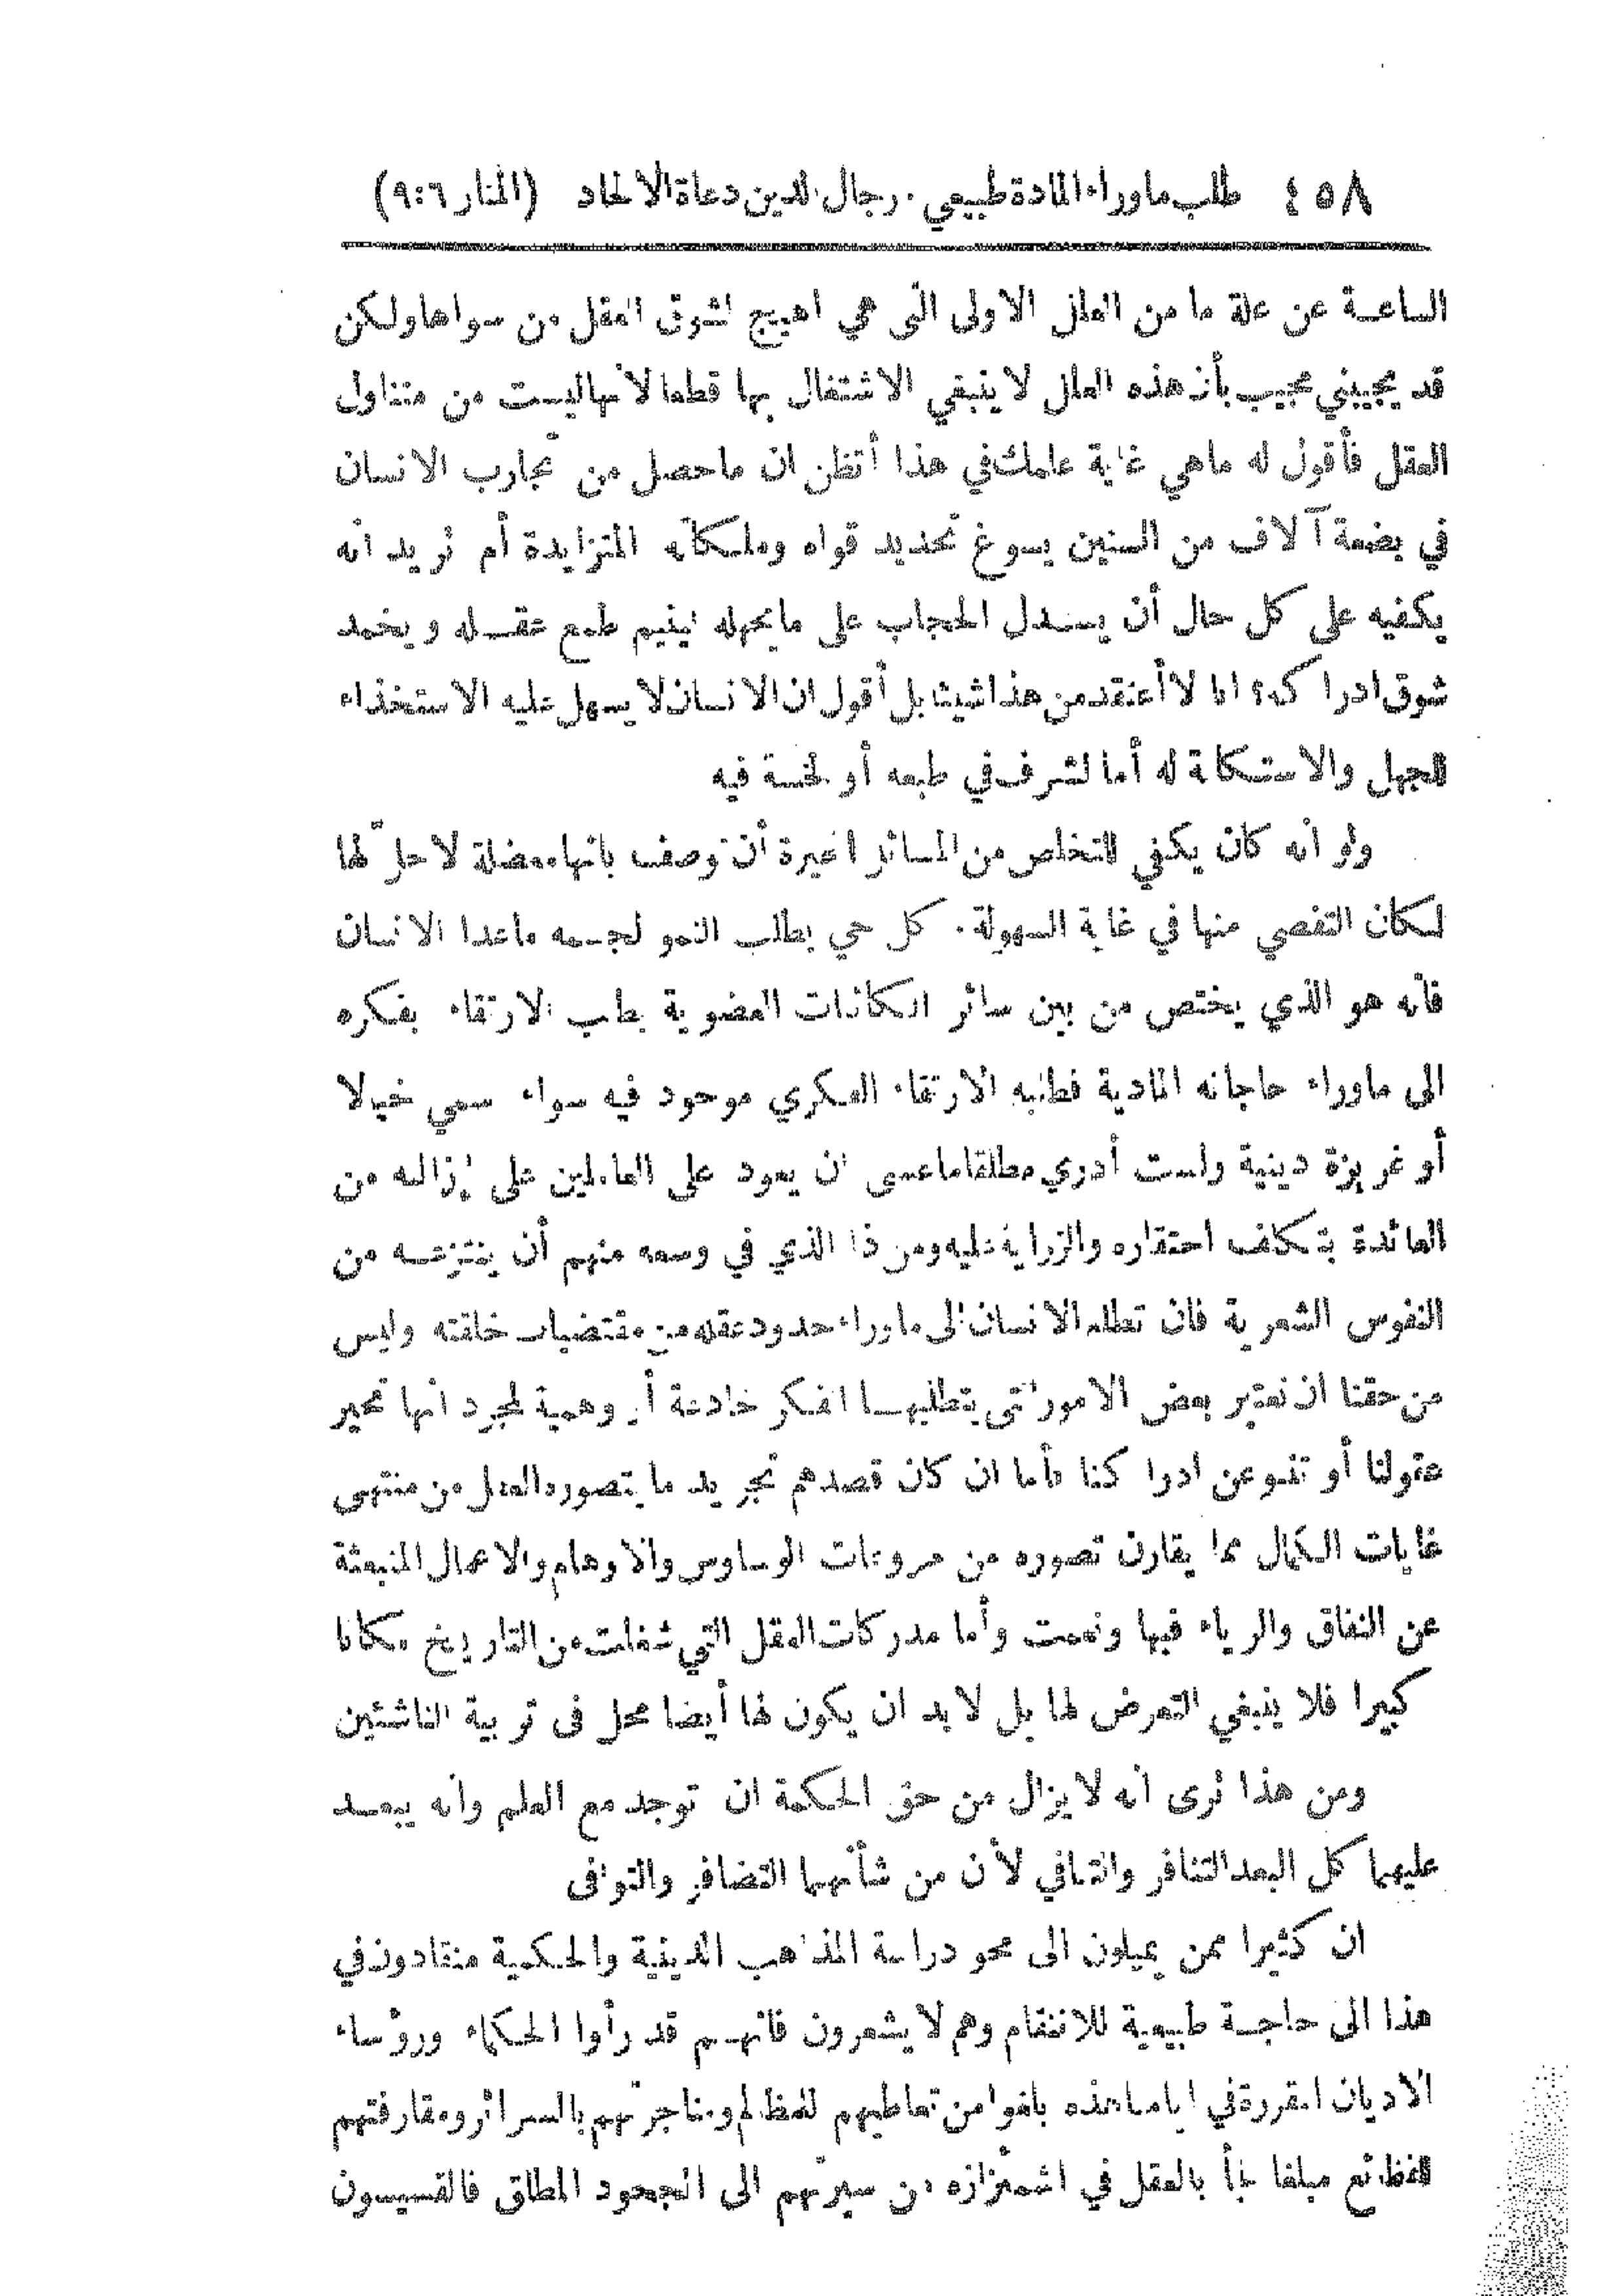 ٤٥٨ طلب ماوراء المادة طبيعي . رجال الدين دعاة الالحاد (المنار ٩:٦)
الساعة عن علة ما من العلل الاولى التى هي اهيج لشوق العقل من سواها ولكن
قد يجيبني مجيب بأن هذه العلل لا ينبغي الاشتغال بها قطعا لأنها ليست من متناول
العقل فأقول له ماهي غاية علمك في هذا أتظن ان ماحصل من تجارب الانسان
في بضعة آلاف من السنين يسوغ تحديد قواه وملكاته المتزايدة أم تريد انه
يكفيه على كل حال أن يسدل الحجاب على مايجهله لينيم طمع عقله ويخمد
شوق ادراكه؟ انا لا أعتقد من هذا شيئا بل أقول ان الانسان لا يسهل عليه الاستخذاء
للجهل والاستكانة له أما لشرف في طبعه أو لخسة فيه
ولو أنه كان يكفي للتخلص من المسائل المحيرة أن توصف بانها معضلة لا حلّ لها
لكان التفصي منها في غاية السهولة. كل حي يطلب النمو لجسمه ماعدا الانسان
فانه هو الذي يختص من بين سائر الكائنات العضوية بطلب الارتقاء بفكره
الى ماوراء حاجاته المادية فطلبه الارتقاء الفكري موجود فيه سواء سمي خيالا
أو غريزة دينية ولست أدري مطلقا ماعسى ان يعود على العاملين على إزالته من
العائدة بتكلف احتقاره والزراية عليه ومن ذا الذي في وسعه منهم أن ينتزعه من
النفوس الشعرية فان تطلع الانسان الى ماوراء حدود عقله من مقتضيات خلقته وليس
من حقنا ان نعتبر بعض الامور التى يتطلبها الفكر خادعة أو وهمية لمجرد انها تحير
عقولنا أو تنبو عن ادراكنا فأما ان كان قصدهم تجريد ما يتصوره العقل من منتهى
غايات الكمال مما يقارن تصوره من مروعات الوساوس والاوهام والاعمال المنبعثة
عن النفاق والرياء فبها ونعمت وأما مدركات العقل التي شغلت من التاريخ مكانا
كبيرا فلا ينبغي التعرض لها بل لا بد ان يكون لها أيضا محل فى تربية الناشئين
ومن هذا ترى انه لا يزال من حق الحكمة ان توجد مع العلم وانه يبعد
عليهما كل البعد التنافر والتنافي لأن من شأنهما التضافر والتوافى
ان كثيرا ممن يميلون الى محو دراسة المذاهب الدينية والحكمية منقادون في
هذا الى حاجة طبيعية للانتقام وهم لا يشعرون فانهم قد رأوا الحكماء ورؤساء
الاديان المقررة في ايامنا هذه بلغوا من تعاطيهم للمظالم ومتاجرتهم بالسرائر ومقارفتهم
للفظائع مبلغا لجأ بالعقل في اشمئزازه من سيرتهم الى الجحود المطلق فالقسيسون